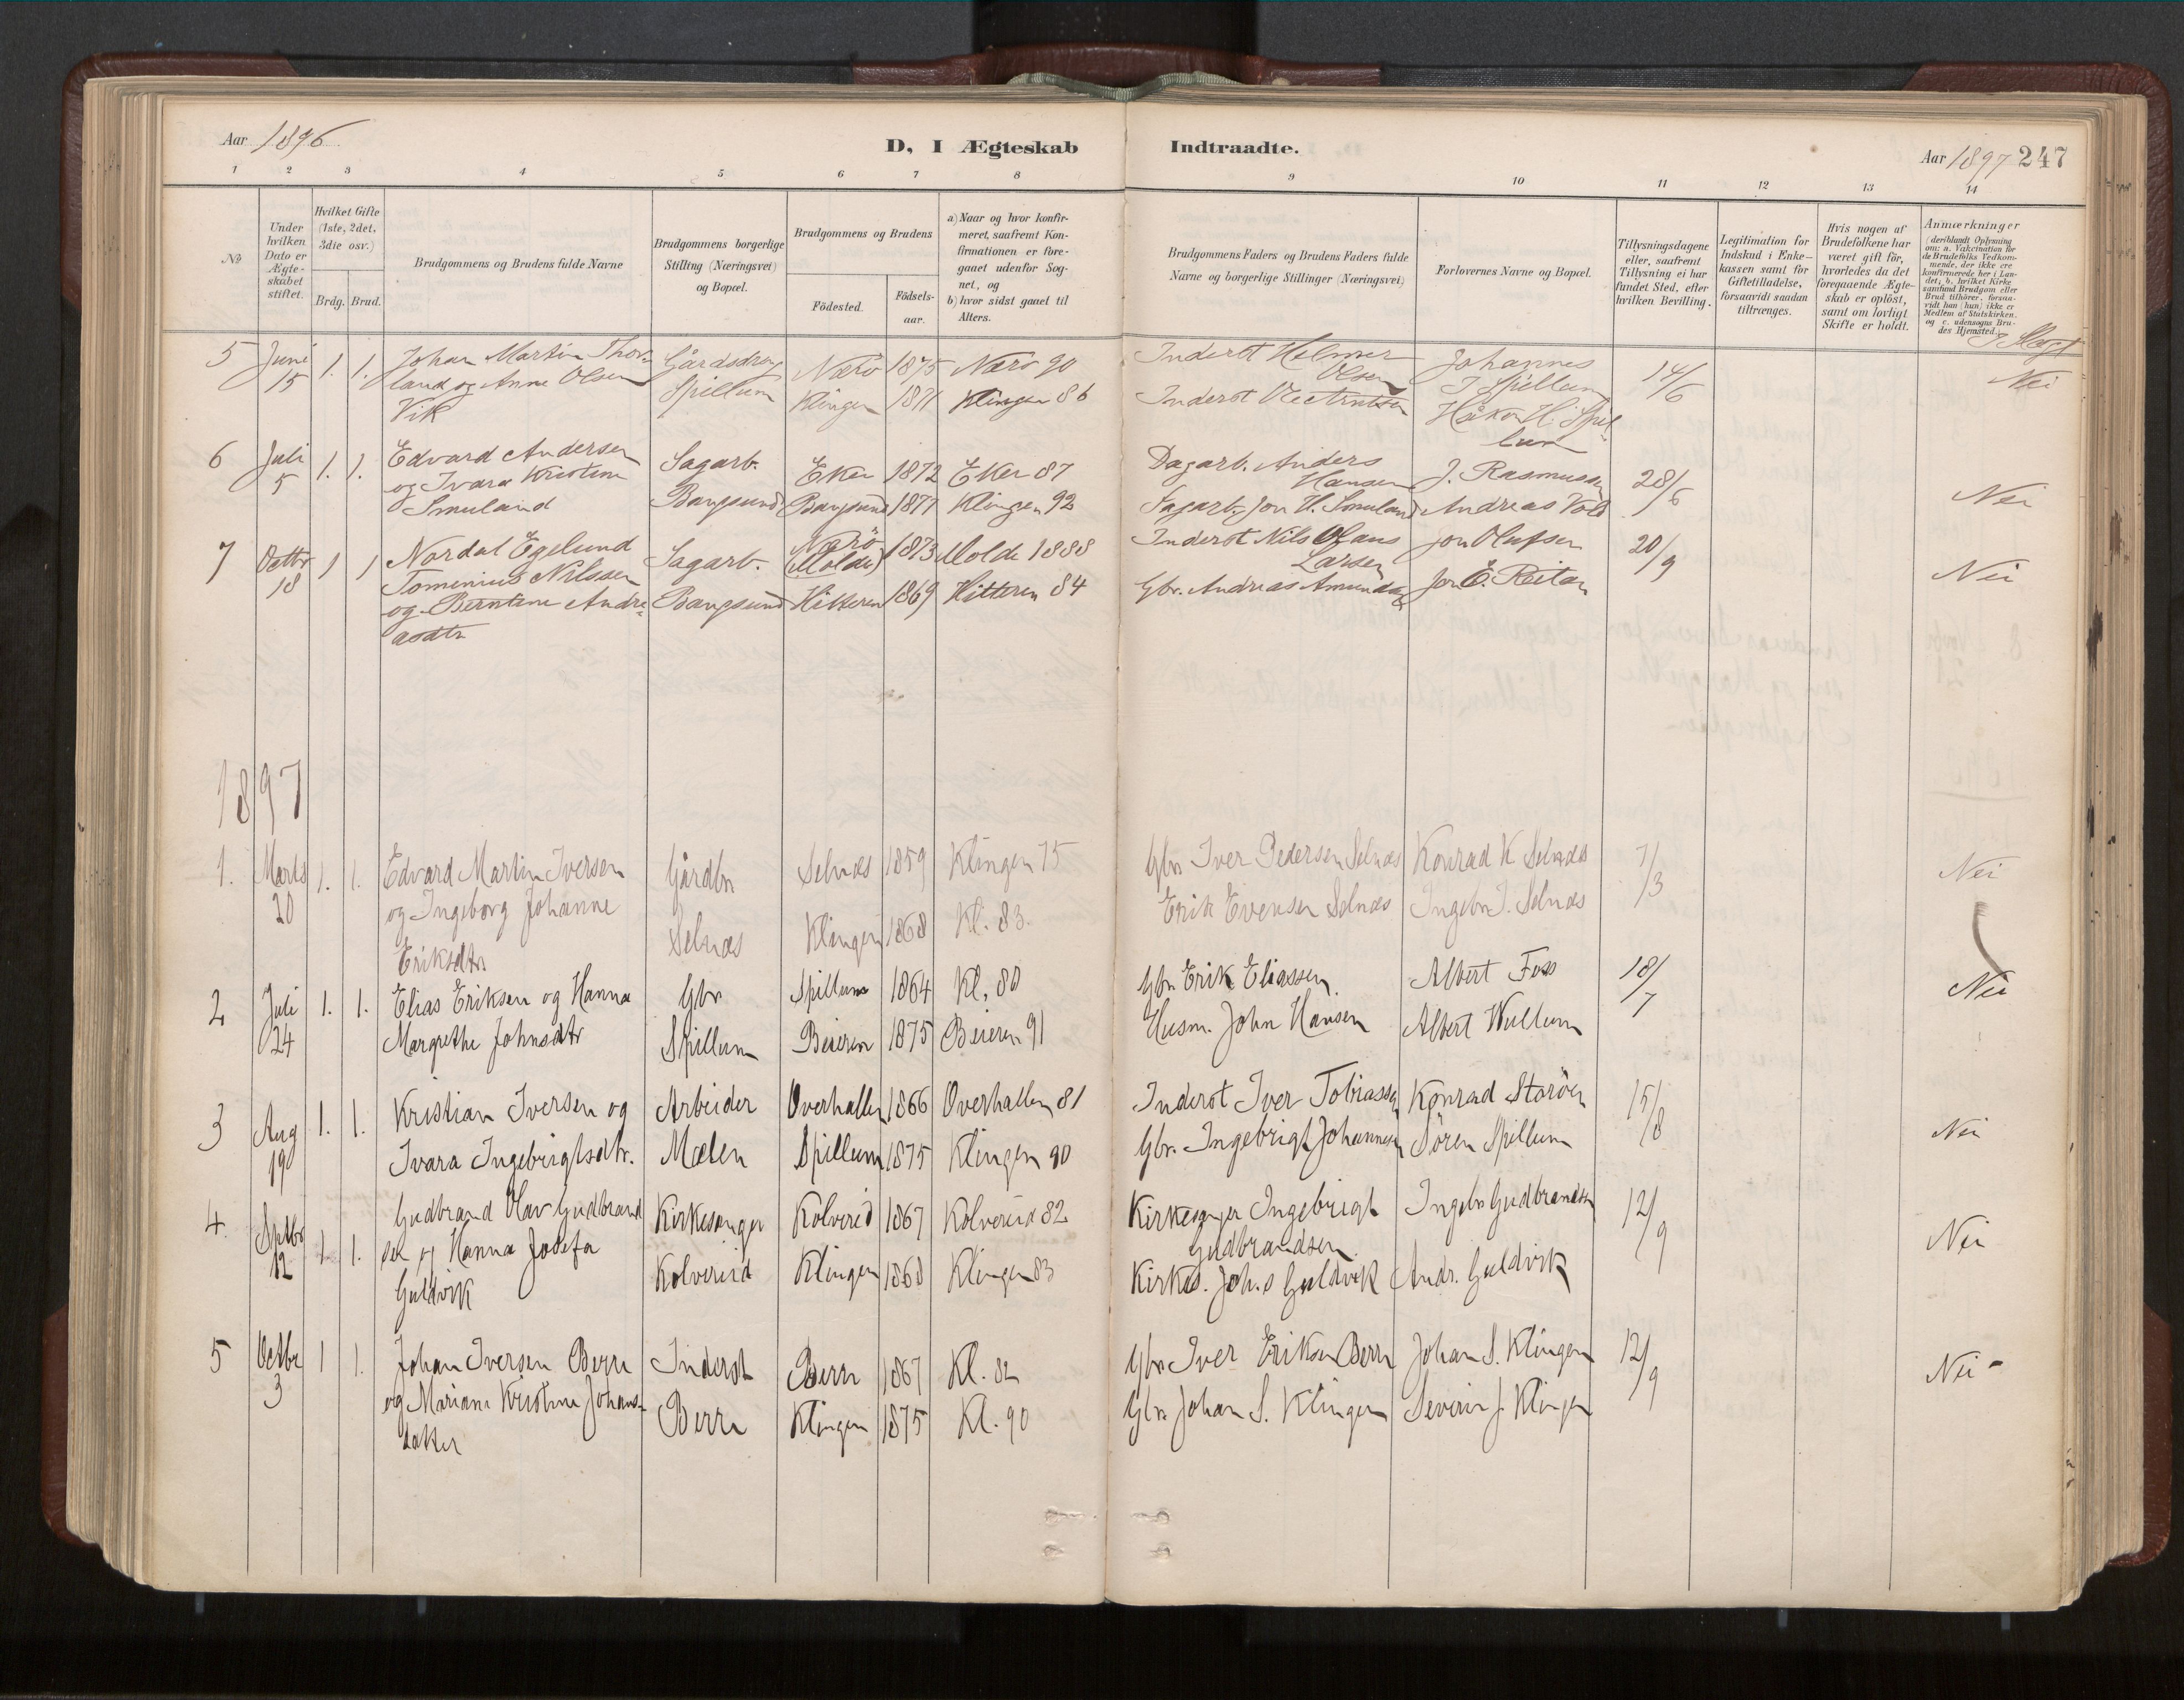 Aar 1896
D, I Ægteskab Indtraadte.
Aar 1897 247
1 2 3 4 5 6 7 8 9 10 11 12 13 14
No
Under hvilken Dato er Ægteskabet stiftet.
Hvilket Gifte (1ste, 2det, 3die osv.)
Brdg. Brud.
Brudgommens og Brudens fulde Navne
Brudgommens borgerlige Stilling (Næringsvei) og Bopæl.
Brudgommens og Brudens
Födested.
Födsels-aar.
a) Naar og hvor konfir-
meret, saafremt Kon-
firmationen er fore-
gaaet udenfor Sog-
net, og
b) hvor sidst gaaet til
Alters.
Brudgommens Faders og Brudens Faders fulde
Navne og borgerlige Stillinger (Næringsvei)
Forlovernes Navne og Bopæl.
Tillysningsdagene
eller, saafremt
Tillysning ei har
fundet Sted, efter
hvilken Bevilling.
Legitimation for
Indskud i Enke-
kassen samt for
Giftetilladelse,
forsaavidt saadan
tiltrænges.
Hvis nogen af
Brudefolkene har
været gift för,
hvorledes da det
foregaaende Ægte-
skab er oplöst,
samt om lovligt
Skifte er holdt.
Anmærkninger
(deriblandt Oplysning
om: a. Vakcination for
de Brudefolks Vedkom-
mende, der ikke ere
konfirmerede her i Lan-
det; b. hvilket Kirke
samfund Brudgom eller
Brud tilhörer, forsaa-
vidt han (hun) ikke er
Medlem af Statskirken.
og c. udensogns Bru-
des Hjemsted.)
I Slægt
5 Juni 15 1. 1. Johan Martin Thor- Gårdsdreng Nærö 1875 Nærö 90 Inderst Helmer Johannes 14/6 Nei
land og Anne Olsen Spillum Klingen 1871 Klingen 86 Olsen J Spillum
Vik Inderst Håkon H. Spil-
lum
6 Juli 5 1. 1. Edvard Andersen Sagarb. Eker 1872 Eker 87 Dagarb. Anders J. Rasmussen 28/6 Nei
og Ivara Kristine Hansen
Smuland Bangsund Bangsund 1877 Klingen 92 Sagarb. Jon H. Smuland Andreas Vold
7 Octbr 18 1 1 Nordal Egelund Sagarb. Nærö (Molde) 1873 Molde 1888 Inderst Nils Olaus Jon Olufsen 20/9 Nei
Tominius Nilssen Larsen
og Berntine Andre- Bangsund Hitteren 1869 Hitteren 84 Gbr. Andreas Amundsen Jon E. Reitan
asdtr
1897
1. Marts 20 1. 1. Edvard Martin Iversen Gårdbr Selnæs 1859 Klingen 75 Gbr Iver Pedersen Selnæs Konrad K Selnæs 7/3 Nei
og Ingeborg Johanne Selnæs Klingen 1868 Kl. 83. Erik Evensen Selnæs Ingebr J. Selnæs
Eriksdtr
2 Juli 24 1. 1. Elias Eriksen og Hanna Gbr Spillum 1864 Kl. 80 Gbr Erik Eliassen. Albert Foss 18/7 Nei
Margrethe Johnsdtr Spillum Beieren 1875 Beieren 91 Husm. John Hansen Albert Wullum
3 Aug 19 1. 1. Kristian Iversen og Arbeider Overhallen 1866 Overhallen 81 Inderst Iver Tobiassen Konrad Storöen 15/8 Nei
Ivara Ingebrigtsdtr. Mælen Spillum 1875 Klingen 90 Gbr. Ingebrigt Johannesen Sören Spillum
4. Septbr 12 1. 1. Gudbrand Olav Gudbrand Kirkesanger Kolvered 1867 Kolvereid 82 Kirkesanger Ingebrigt Ingebr Gudbrandsen 12/9 Nei
sen og Hanna Josefa Gudbrandsen.
Guldvik Kolvereid Klingen 1868 Klingen 83 Kirkes. Johs Guldvik Andr. Guldvik
5 Octbr 3 1 1. Johan Iversen Berre Inderst Berre 1867 Kl. 82 Gbr Iver Eriksen Berre Johan S. Klingen 12/9 Nei
og Mariane Kristine Johans- Berre Klingen 1875 Kl. 90 Gbr Johan S. Klingen Severin J. Klingen
datter